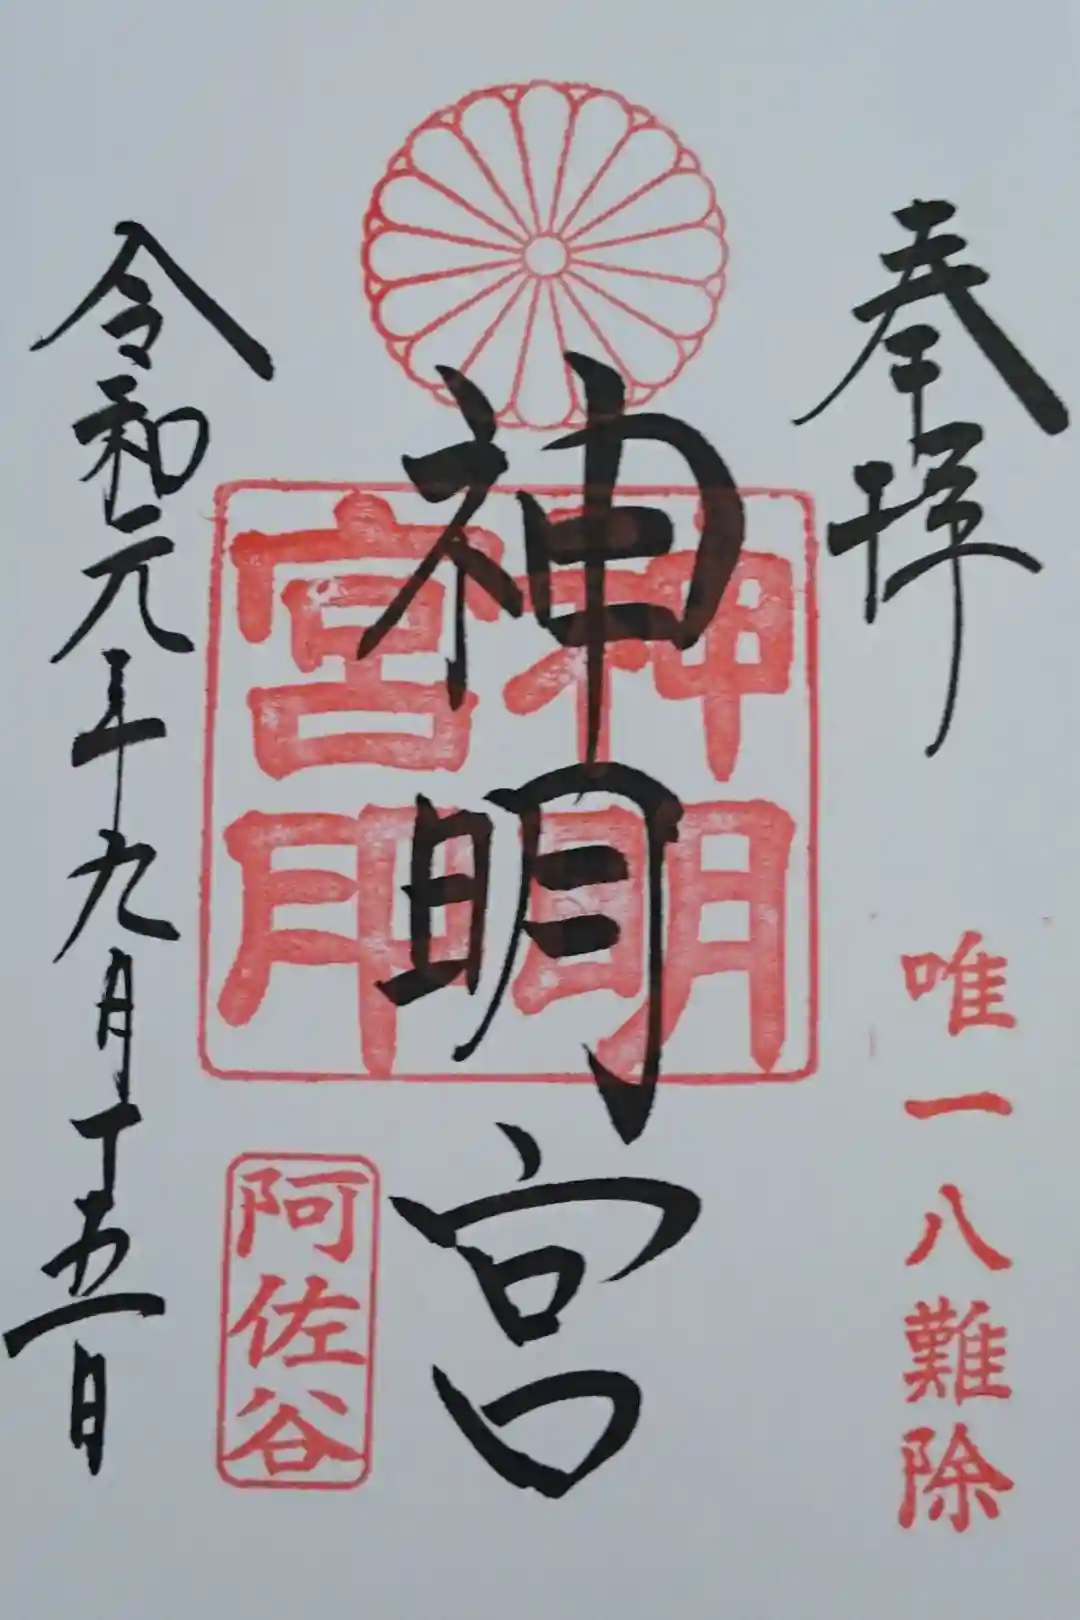 奉拝
唯一八難除
神明宮
神明
宮
阿佐谷
令和元年九月十五日